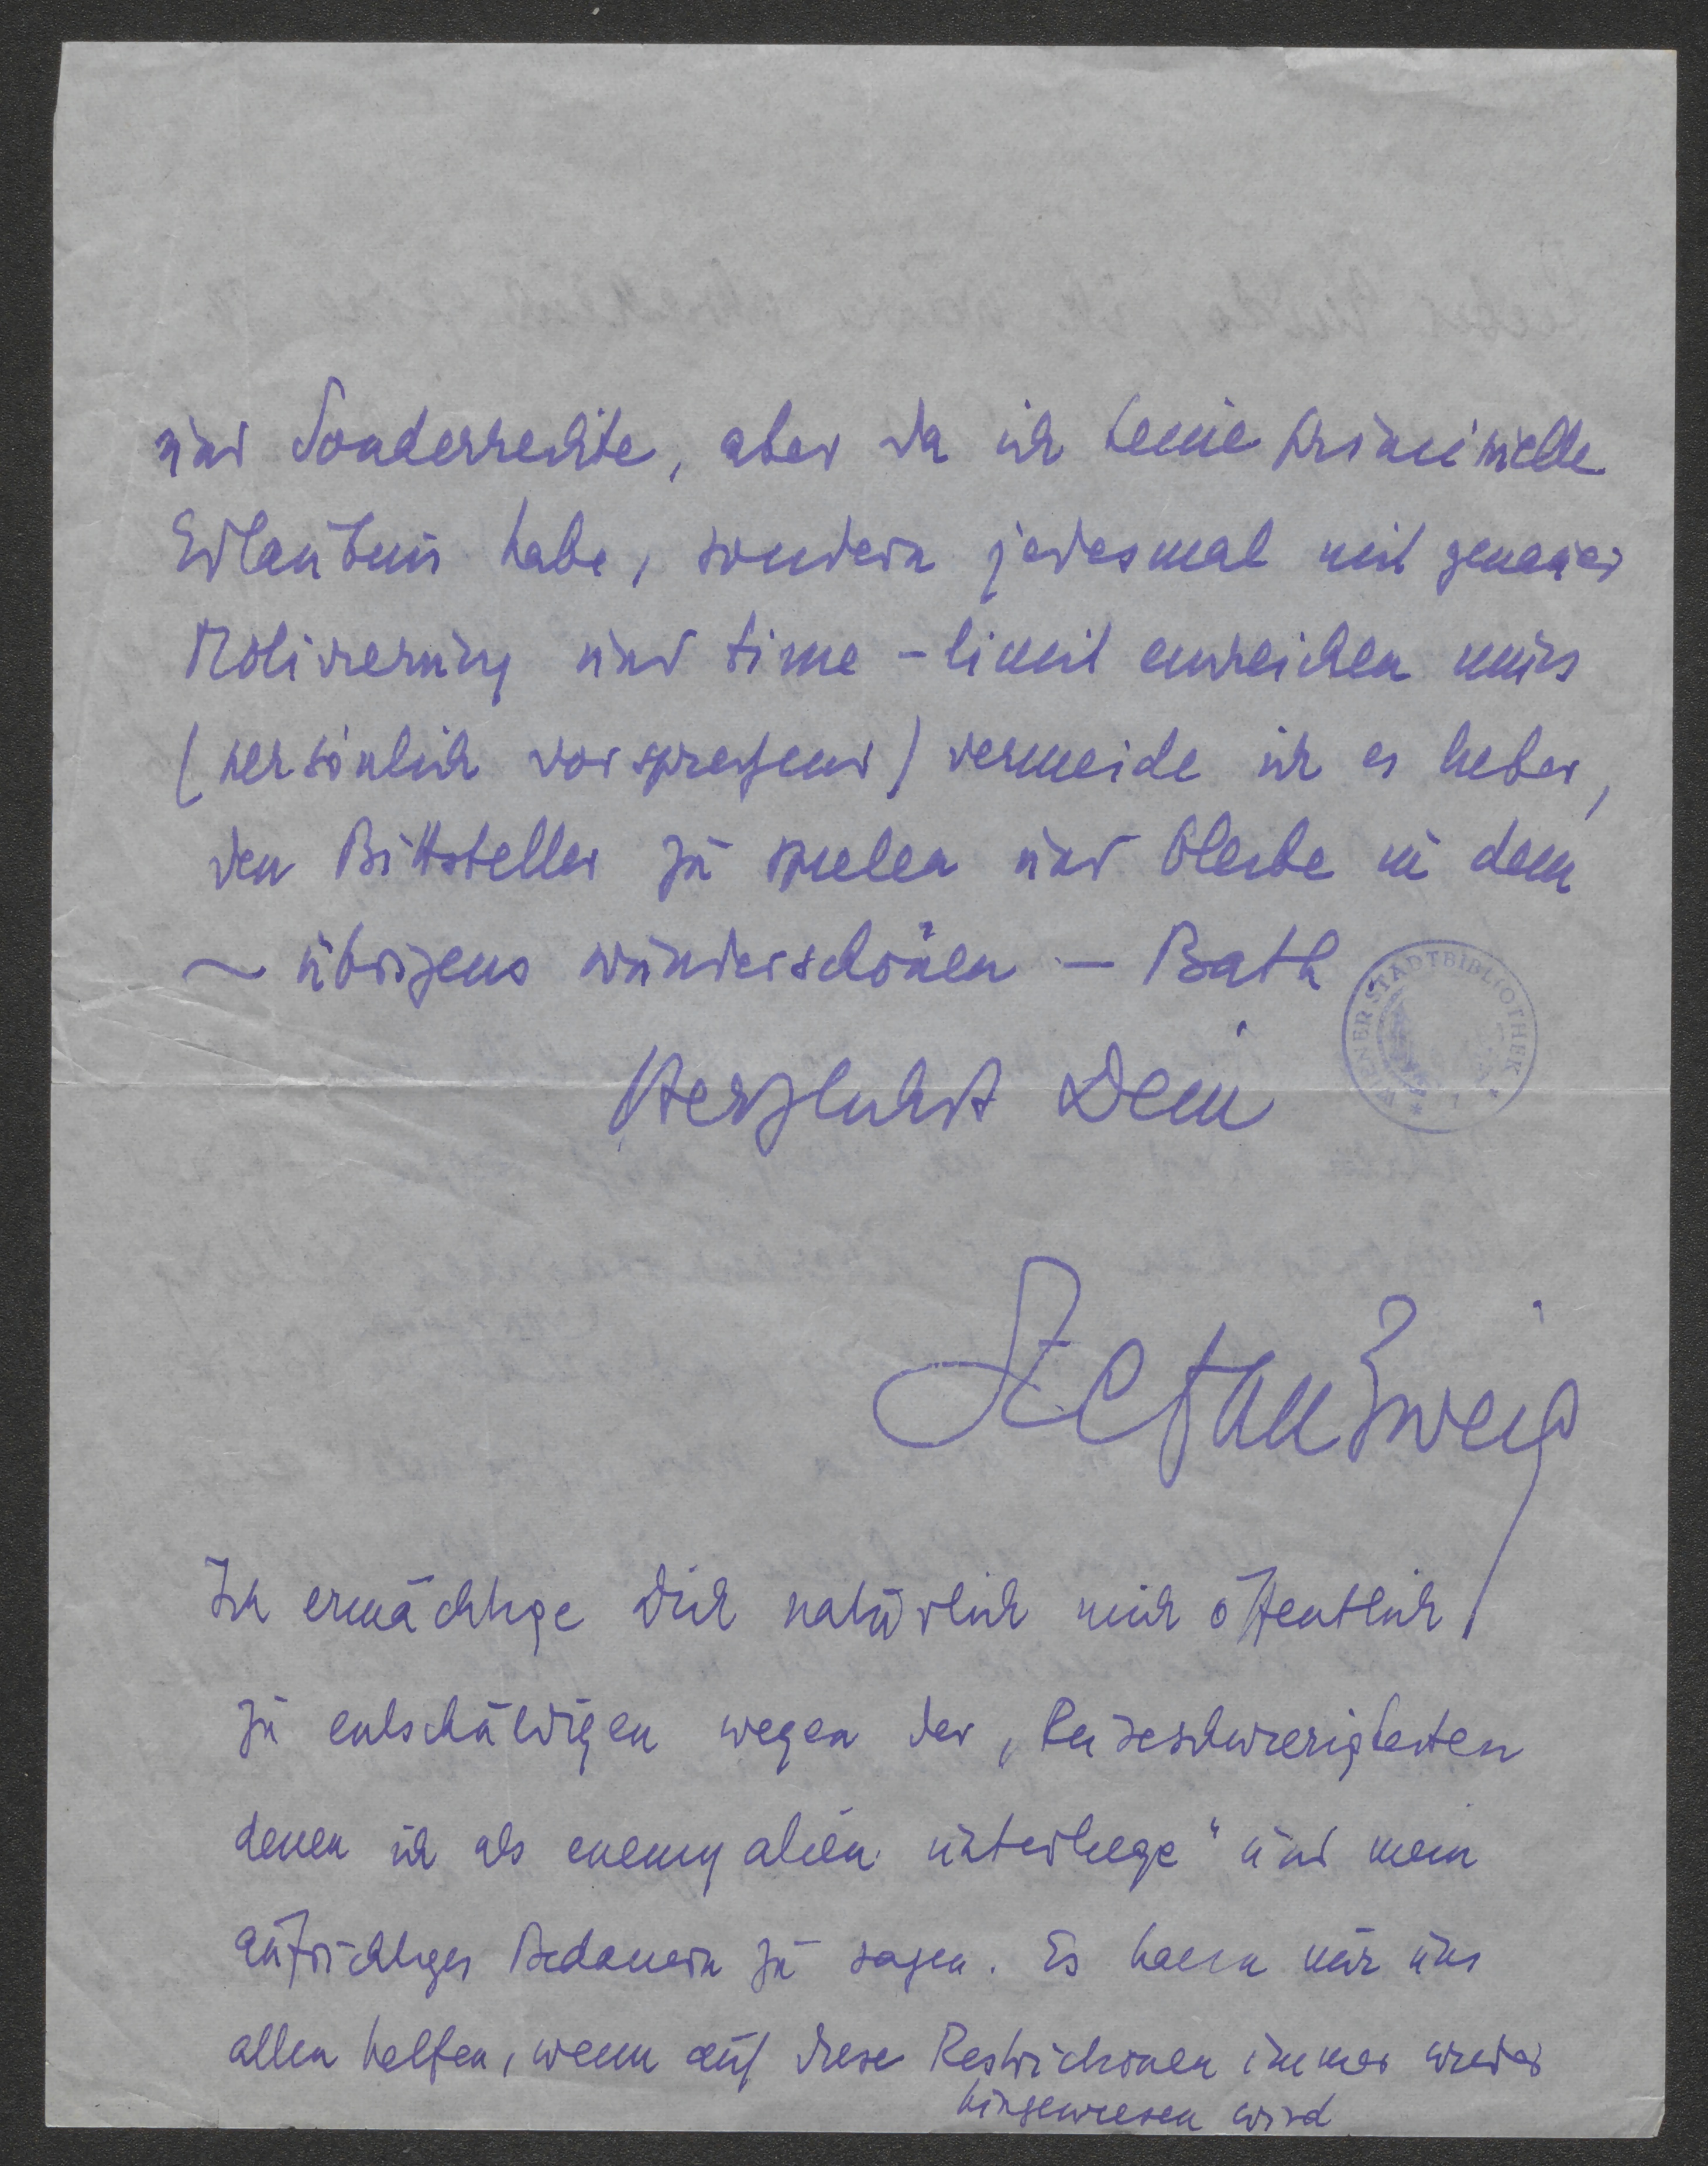 und Sonderrechte, aber da ich keine prinzipielle
Erlaubnis habe, sondern jedesmal mit genauer
Motivierung und time-limit einreichen muss
(persönlich vorsprechend) vermeide ich es lieber,
den Bittsteller zu spielen und bleibe in dem
– übrigens wunderschönen – Bath
WIENER STADTBIBLIOTHEK
Herzlichst Dein
Stefan Zweig
Ich ermächtige Dich natürlich mich öffentlich
zu entschuldigen wegen der „Reiseschwierigkeiten
denen ich als enemy alien unterliege“ und mein
aufrichtiges Bedauern zu sagen. Es kann nur uns
allen helfen, wenn auf diese Restrictionen immer wieder
hingewiesen wird